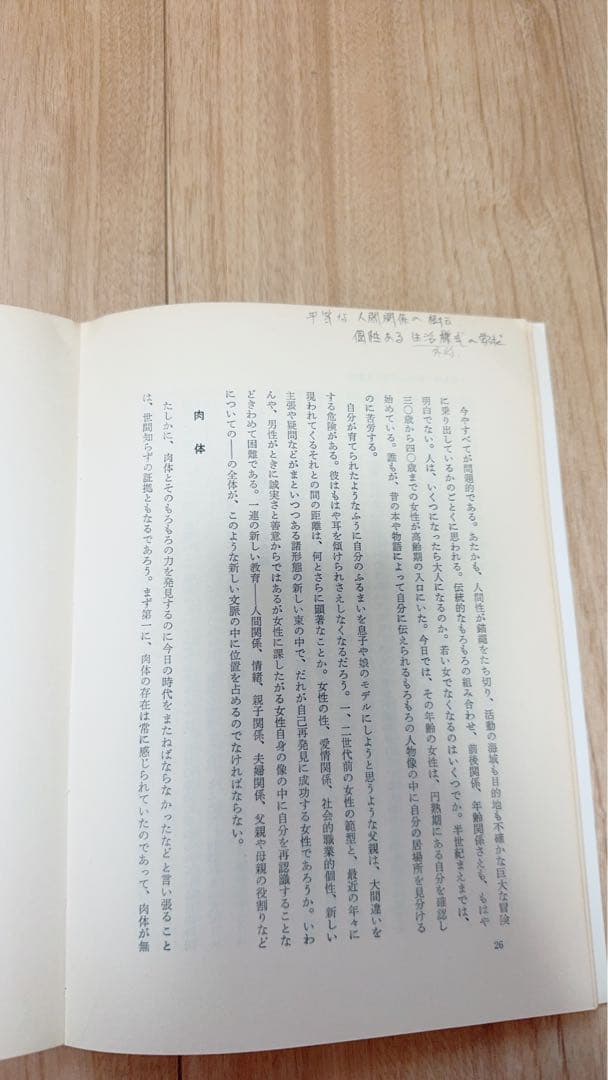 平等な人間関係の
個性ある生活様式の
今やすべてが問題的である。あたかも、人間性が錨綱をたち切り、活動の海域も目的地も不確かな巨大な冒険
に乗り出しているかのごとくに思われる。伝統的なもろもろの組み合わせ、前後関係、年齢関係さえも、もはや
明白でない。人は、いくつになったら大人になるのか。若い女でなくなるのはいくつでか。半世紀まえまでは、
三〇歳から四〇歳までの女性が高齢期の入口にいた。今日では、その年齢の女性は、円熟期にある自分を確認し
始めている。誰もが、昔の本や物語によって自分に伝えられるもろもろの人物像の中に自分の居場所を見分ける
のに苦労する。
自分が育てられたようなふうに自分のふるまいを息子や娘のモデルにしようと思うような父親は、大間違いを
する危険がある。彼はもはや耳を傾けられさえしなくなるだろう。一、二世代前の女性の範型と、最近の年々に
現われてくるそれとの間の距離は、何とさらに顕著なことか。女性の性、愛情関係、社会的職業的個性、新しい
主張や疑問などがまといつつある諸形態の新しい束の中で、だれが自己再発見に成功する女性であろうか。いわ
んや、男性がときに誠実さと善意からではあるが女性に課したがる女性自身の像の中に自分を再認識することな
どきわめて困難である。一連の新しい教育――人間関係、情緒、親子関係、夫婦関係、父親や母親の役割りなど
についての――の全体が、このような新しい文脈の中に位置を占めるのでなければならない。
肉体
たしかに、肉体とそのもろもろの力を発見するのに今日の時代をまたねばならなかったなどと言い張ること
は、世間知らずの証拠ともなるであろう。まず第一に、肉体の存在は常に感じられていたのであって、肉体が無
26